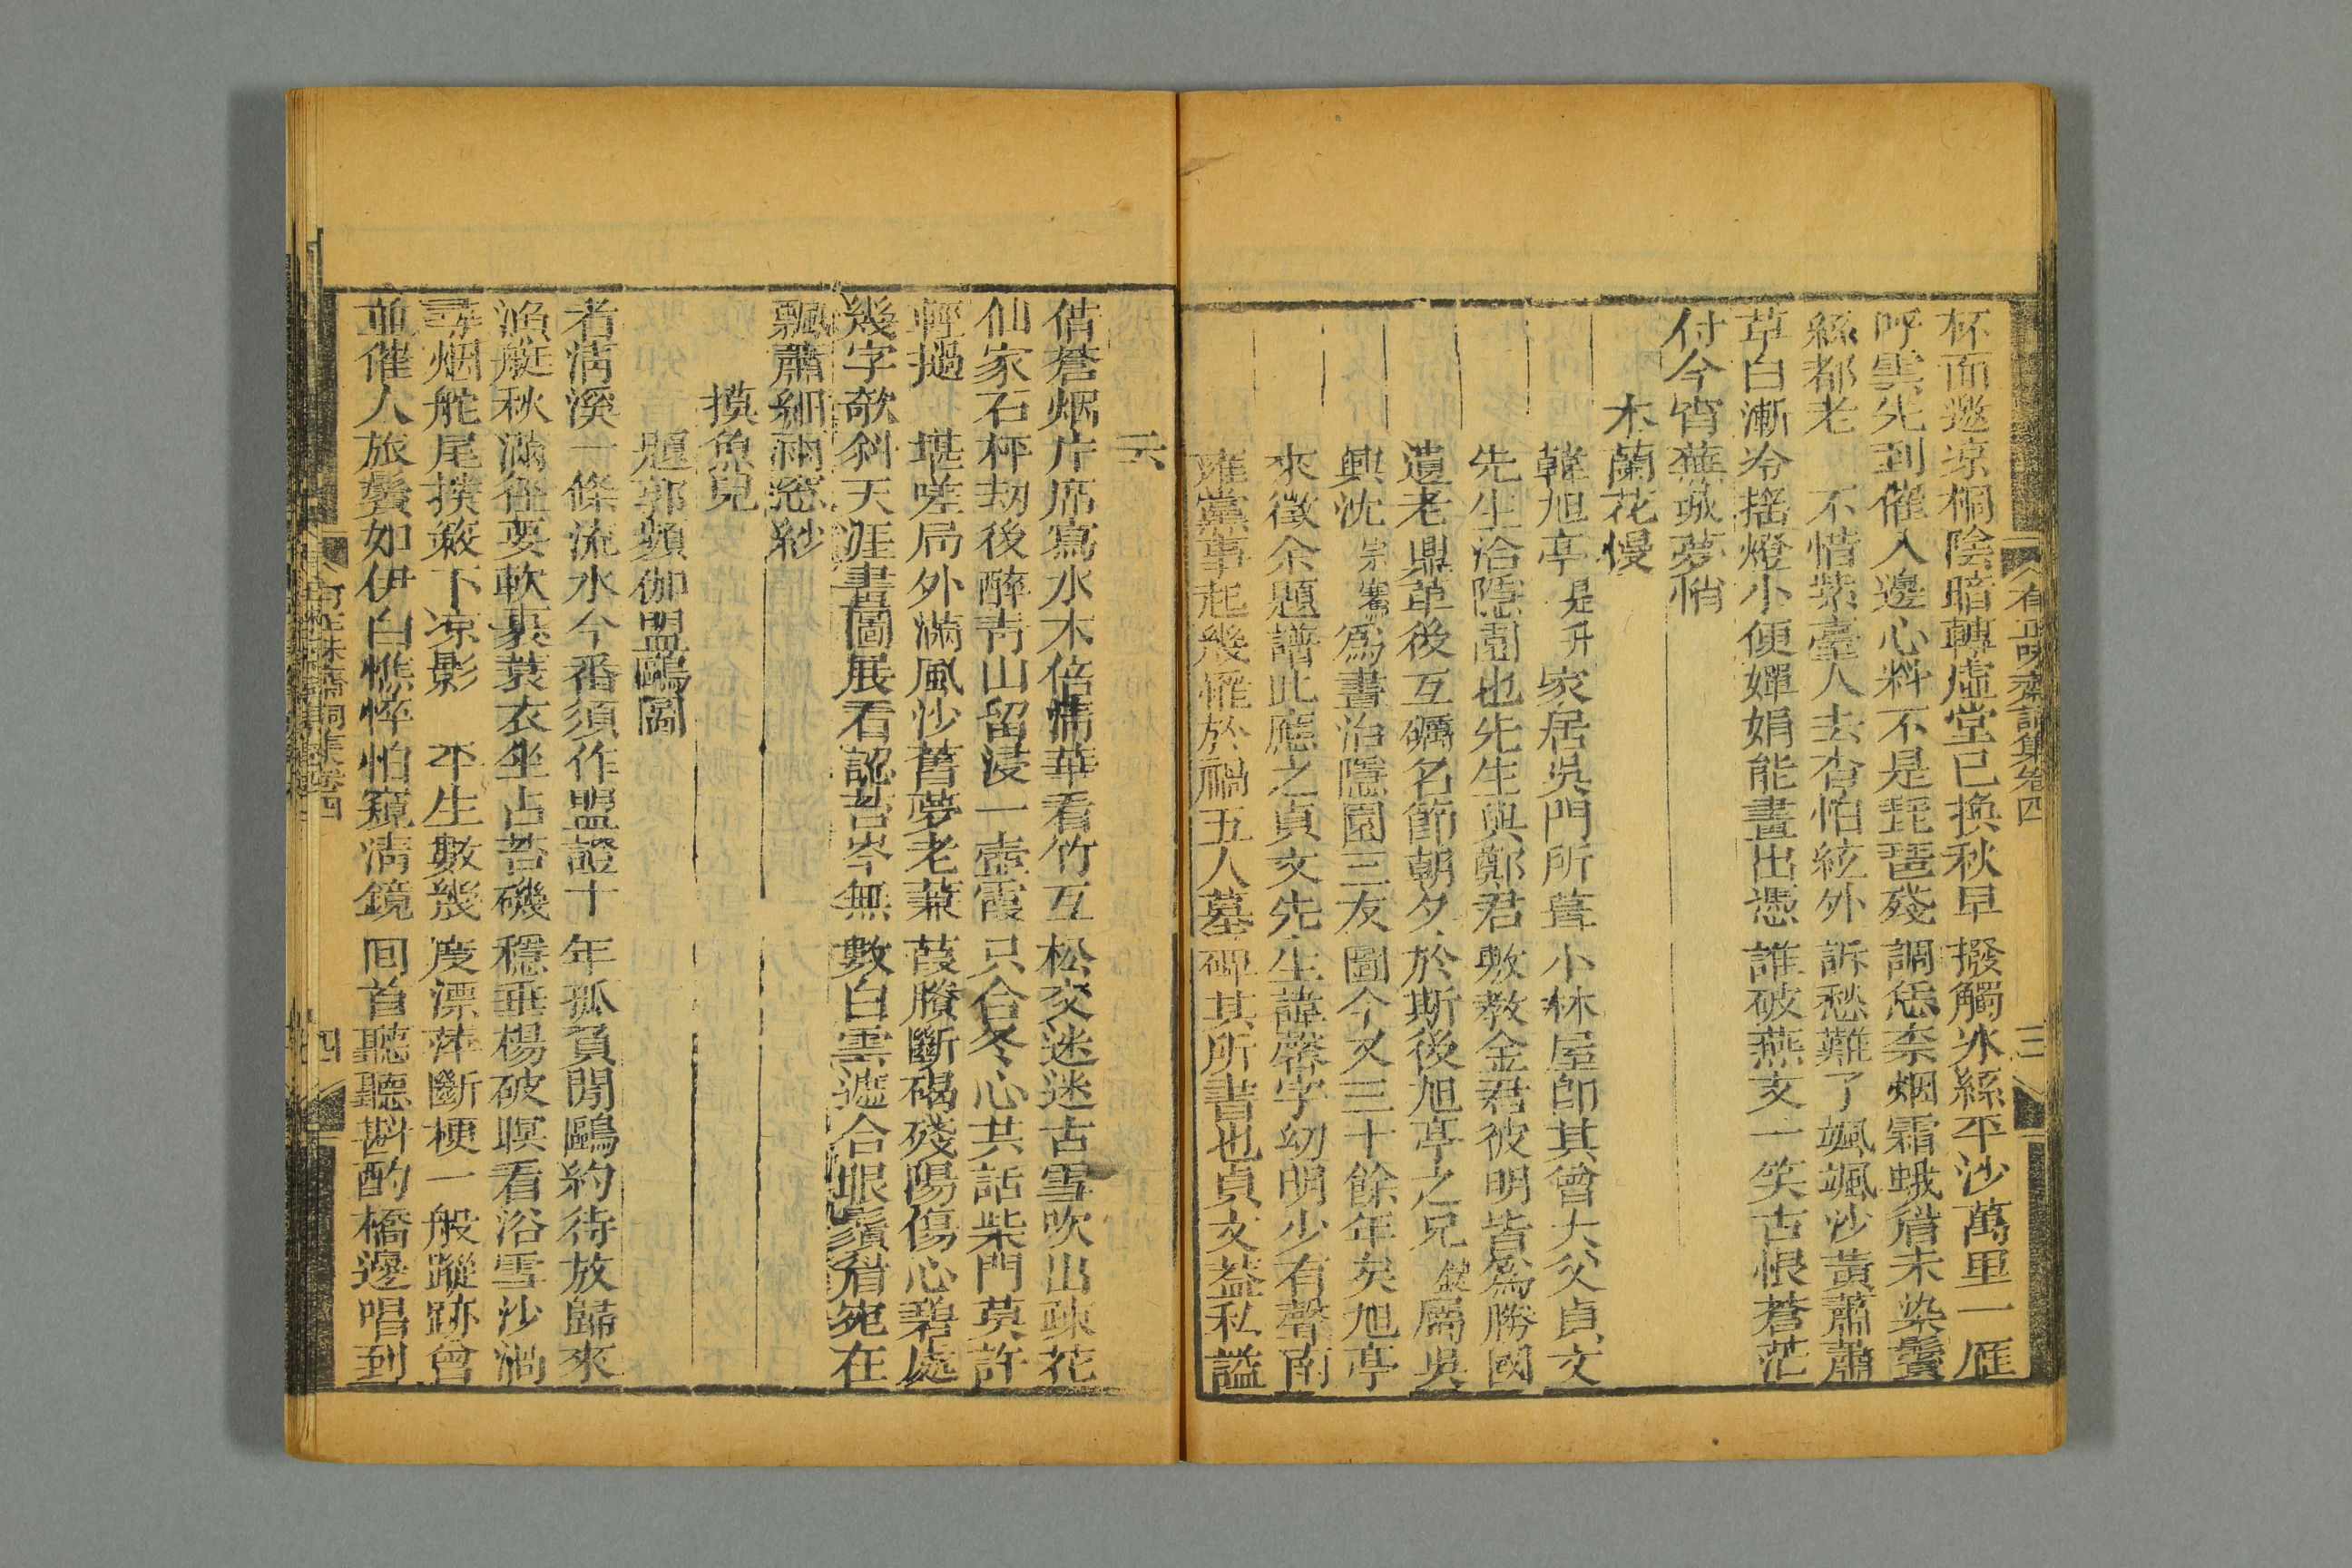 杯而邀涼桐陰暗轉虛堂已換秋早撥觸冰絲平沙萬里一雁
呼雲先到催人邊心料不是琵琶殘調恁柰烟霜蛾眉未染鬢
絲都老　不惜紫臺人去杳怕絃外訴愁難了颯颯沙黃蕭蕭
草白漸冷搖燈小便嬋娟能畫出憑誰破燕支一笑古恨蒼茫
付今宵蕪城夢悄
木蘭花慢
韓旭亭是升家居吳門所葺小林屋卽其曾大父貞文
先生洽隱園也先生與鄭君敷教金君彼明皆爲勝國
遺老鼎革後互礪名節朝夕於斯後旭亭之兄屬吳
興沈宗騫爲畫洽隱園三友圖今又三十餘年矣旭亭
來徵余題譜此應之貞文先生諱馨字幼明少有聲南
雍黨事起幾罹於禍五人墓碑其所書也貞文葢私謚
有正味齋詞集卷四
三
云
借蒼烟片席寫水木倍淸華看竹互松交迷迷古雪吹出疎花
仙家石枰刧後醉靑山留浸一壺霞只合冬心共話柴門莫許
輕撾　堪嗟局外滿風沙舊夢老蒹葭賸斷碣殘陽傷心碧處
幾字欹斜天涯畫圖展看認苔岑無數白雲遮合眼鬚眉宛在
飄蕭細雨窓紗
摸魚兒
題郭頻伽盟鷗圖
者淸溪一條流水今番須作盟證十年孤負閒鷗約待放歸來
漁艇秋滿徑要軟裹蓑衣坐占苔磯穩垂楊破暝看浴雪沙渦
尋烟舵尾撲簌下涼影　平生數幾度漂萍斷梗一般蹤跡曾
並催人旅鬢如伊白憔悴怕窺淸鏡囘首聽聽斟酌橋邊唱到
有正味齋詞集卷四
四